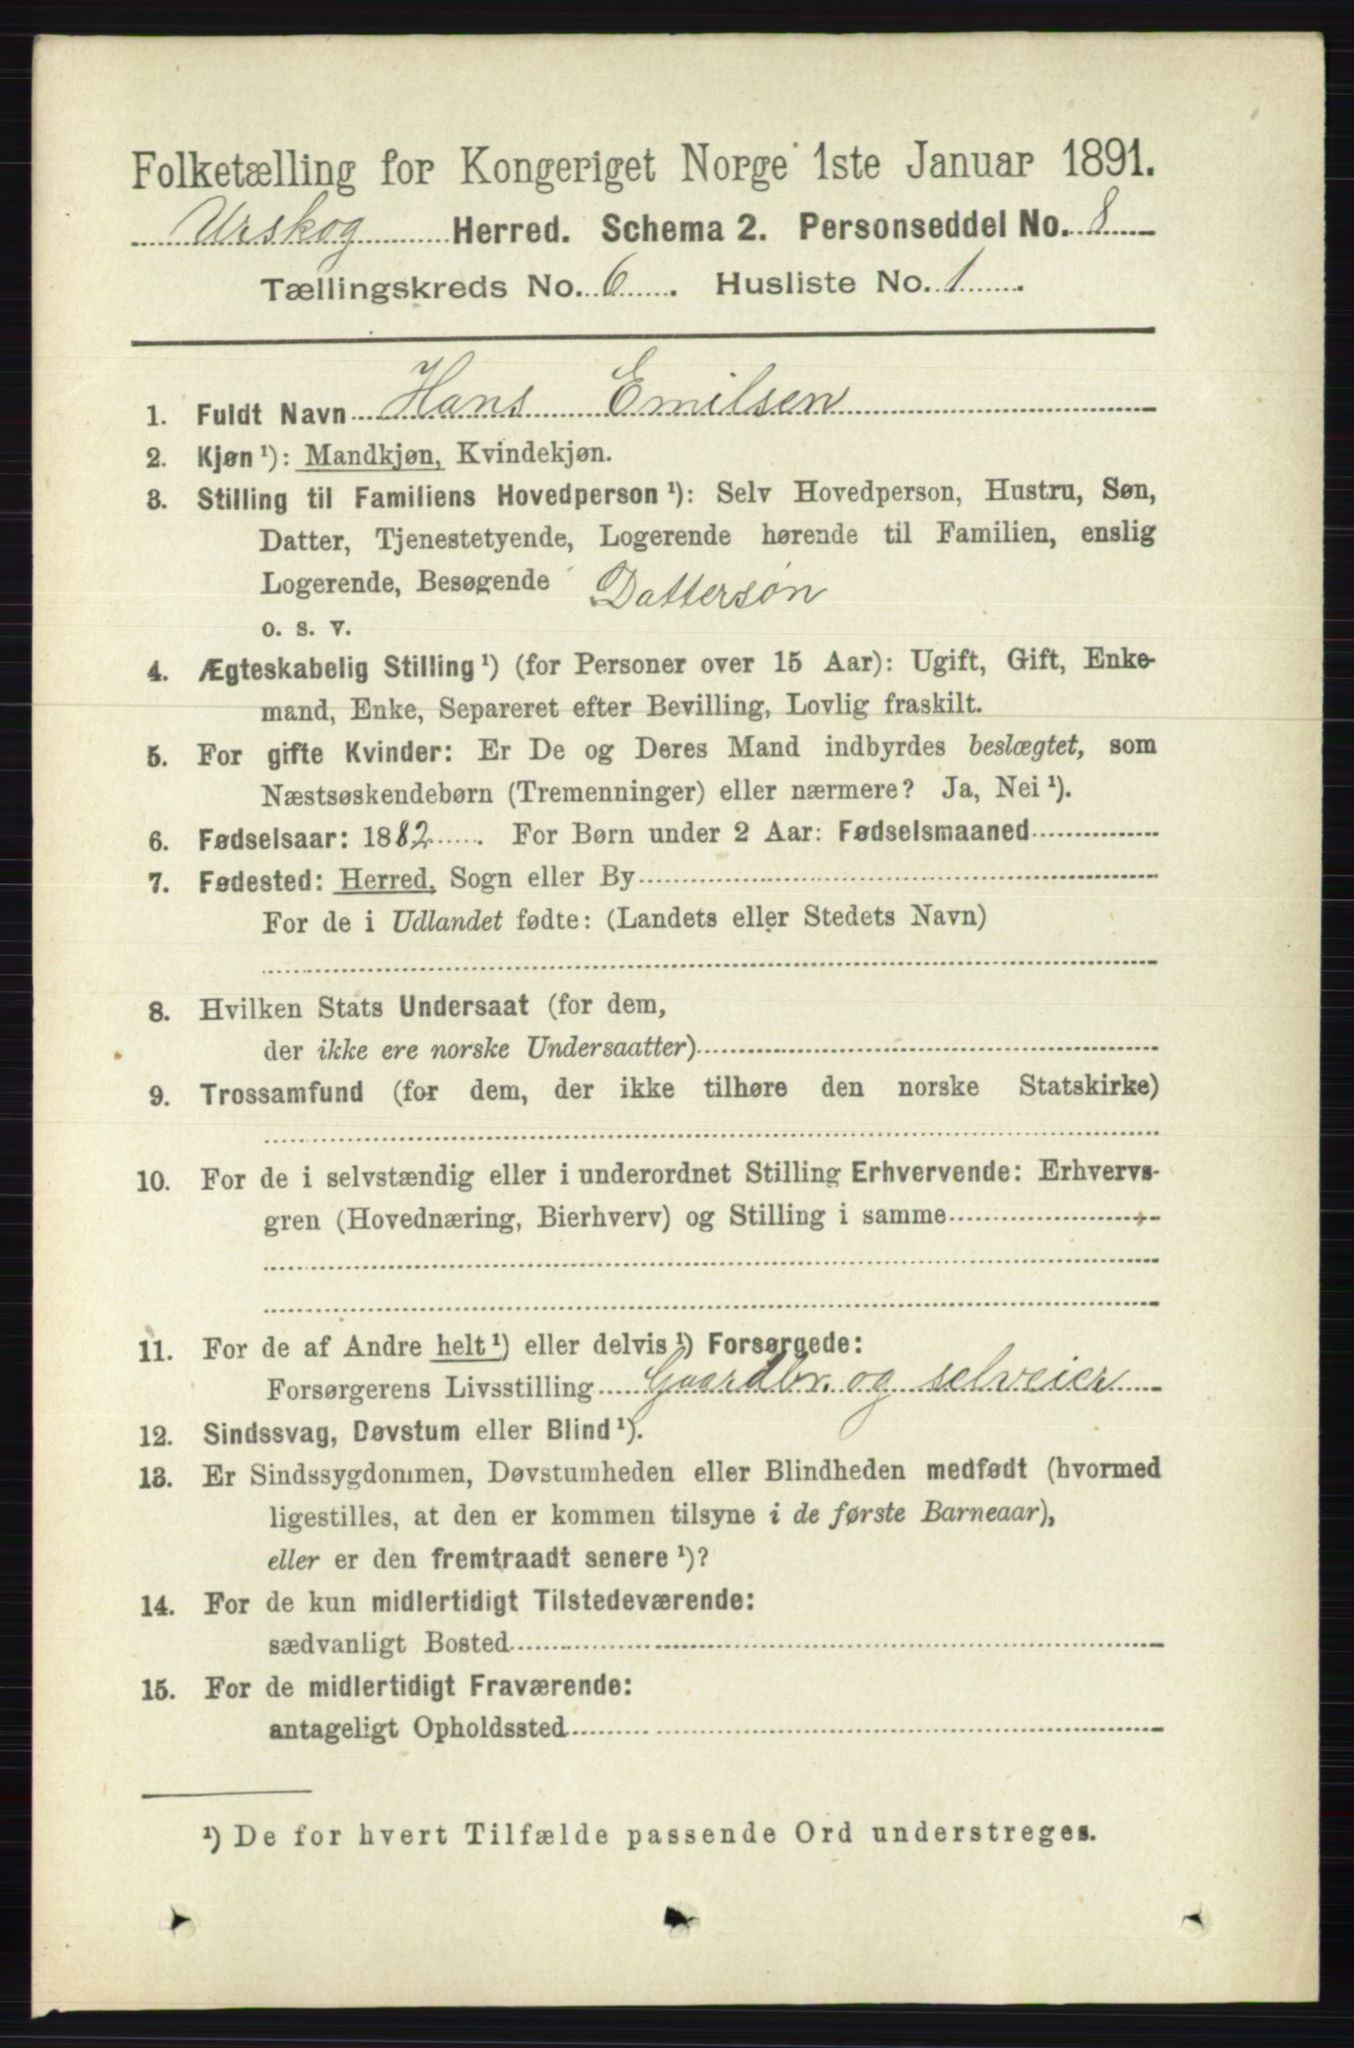 Folketælling for Kongeriget Norge 1ste Januar 1891.
Urskog Herred. Schema 2. Personseddel No. 8
Tællingskreds No. 6. Husliste No. 1.
1. Fuldt Navn Hans Emilsen
2. Kjøn ¹): Mandkjøn, Kvindekjøn.
3. Stilling til Familiens Hovedperson ¹): Selv Hovedperson, Hustru, Søn,
Datter, Tjenestetyende, Logerende hørende til Familien, enslig
Logerende, Besøgende Dattersøn
o. s. v.
4. Ægteskabelig Stilling ¹) (for Personer over 15 Aar): Ugift, Gift, Enke-
mand, Enke, Separeret efter Bevilling, Lovlig fraskilt.
5. For gifte Kvinder: Er De og Deres Mand indbyrdes beslægtet, som
Næstsøskendebørn (Tremenninger) eller nærmere? Ja, Nei ¹).
6. Fødselsaar: 1882. For Børn under 2 Aar: Fødselsmaaned
7. Fødested: Herred, Sogn eller By
For de i Udlandet fødte: (Landets eller Stedets Navn)
8. Hvilken Stats Undersaat (for dem,
der ikke ere norske Undersaatter)
9. Trossamfund (for dem, der ikke tilhøre den norske Statskirke)
10. For de i selvstændig eller i underordnet Stilling Erhvervende: Erhvervs-
gren (Hovednæring, Bierhverv) og Stilling i samme
11. For de af Andre helt ¹) eller delvis ¹) Forsørgede:
Forsørgerens Livsstilling Gaardbr. og selveier
12. Sindssvag, Døvstum eller Blind ¹).
13. Er Sindssygdommen, Døvstumheden eller Blindheden medfødt (hvormed
ligestilles, at den er kommen tilsyne i de første Barneaar),
eller er den fremtraadt senere ¹)?
14. For de kun midlertidigt Tilstedeværende:
sædvanligt Bosted
15. For de midlertidigt Fraværende:
antageligt Opholdssted
¹) De for hvert Tilfælde passende Ord understreges.